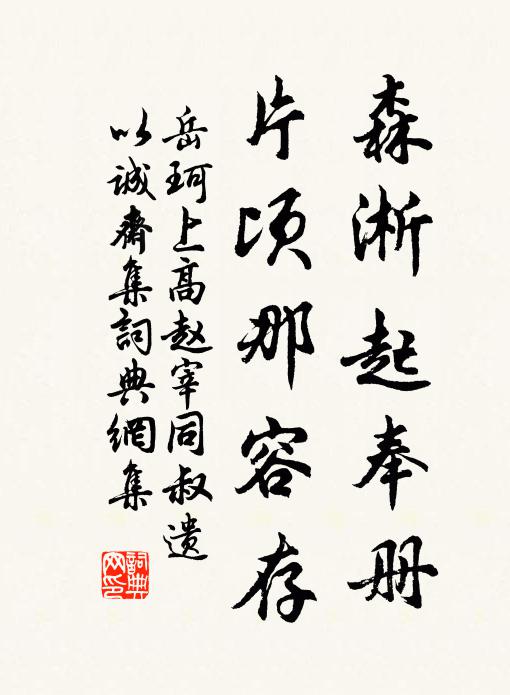 森淅起奉册
片顷那容存
岳珂上高赵宰同叔遗
以诚齋集詞典網集
詞典
网印